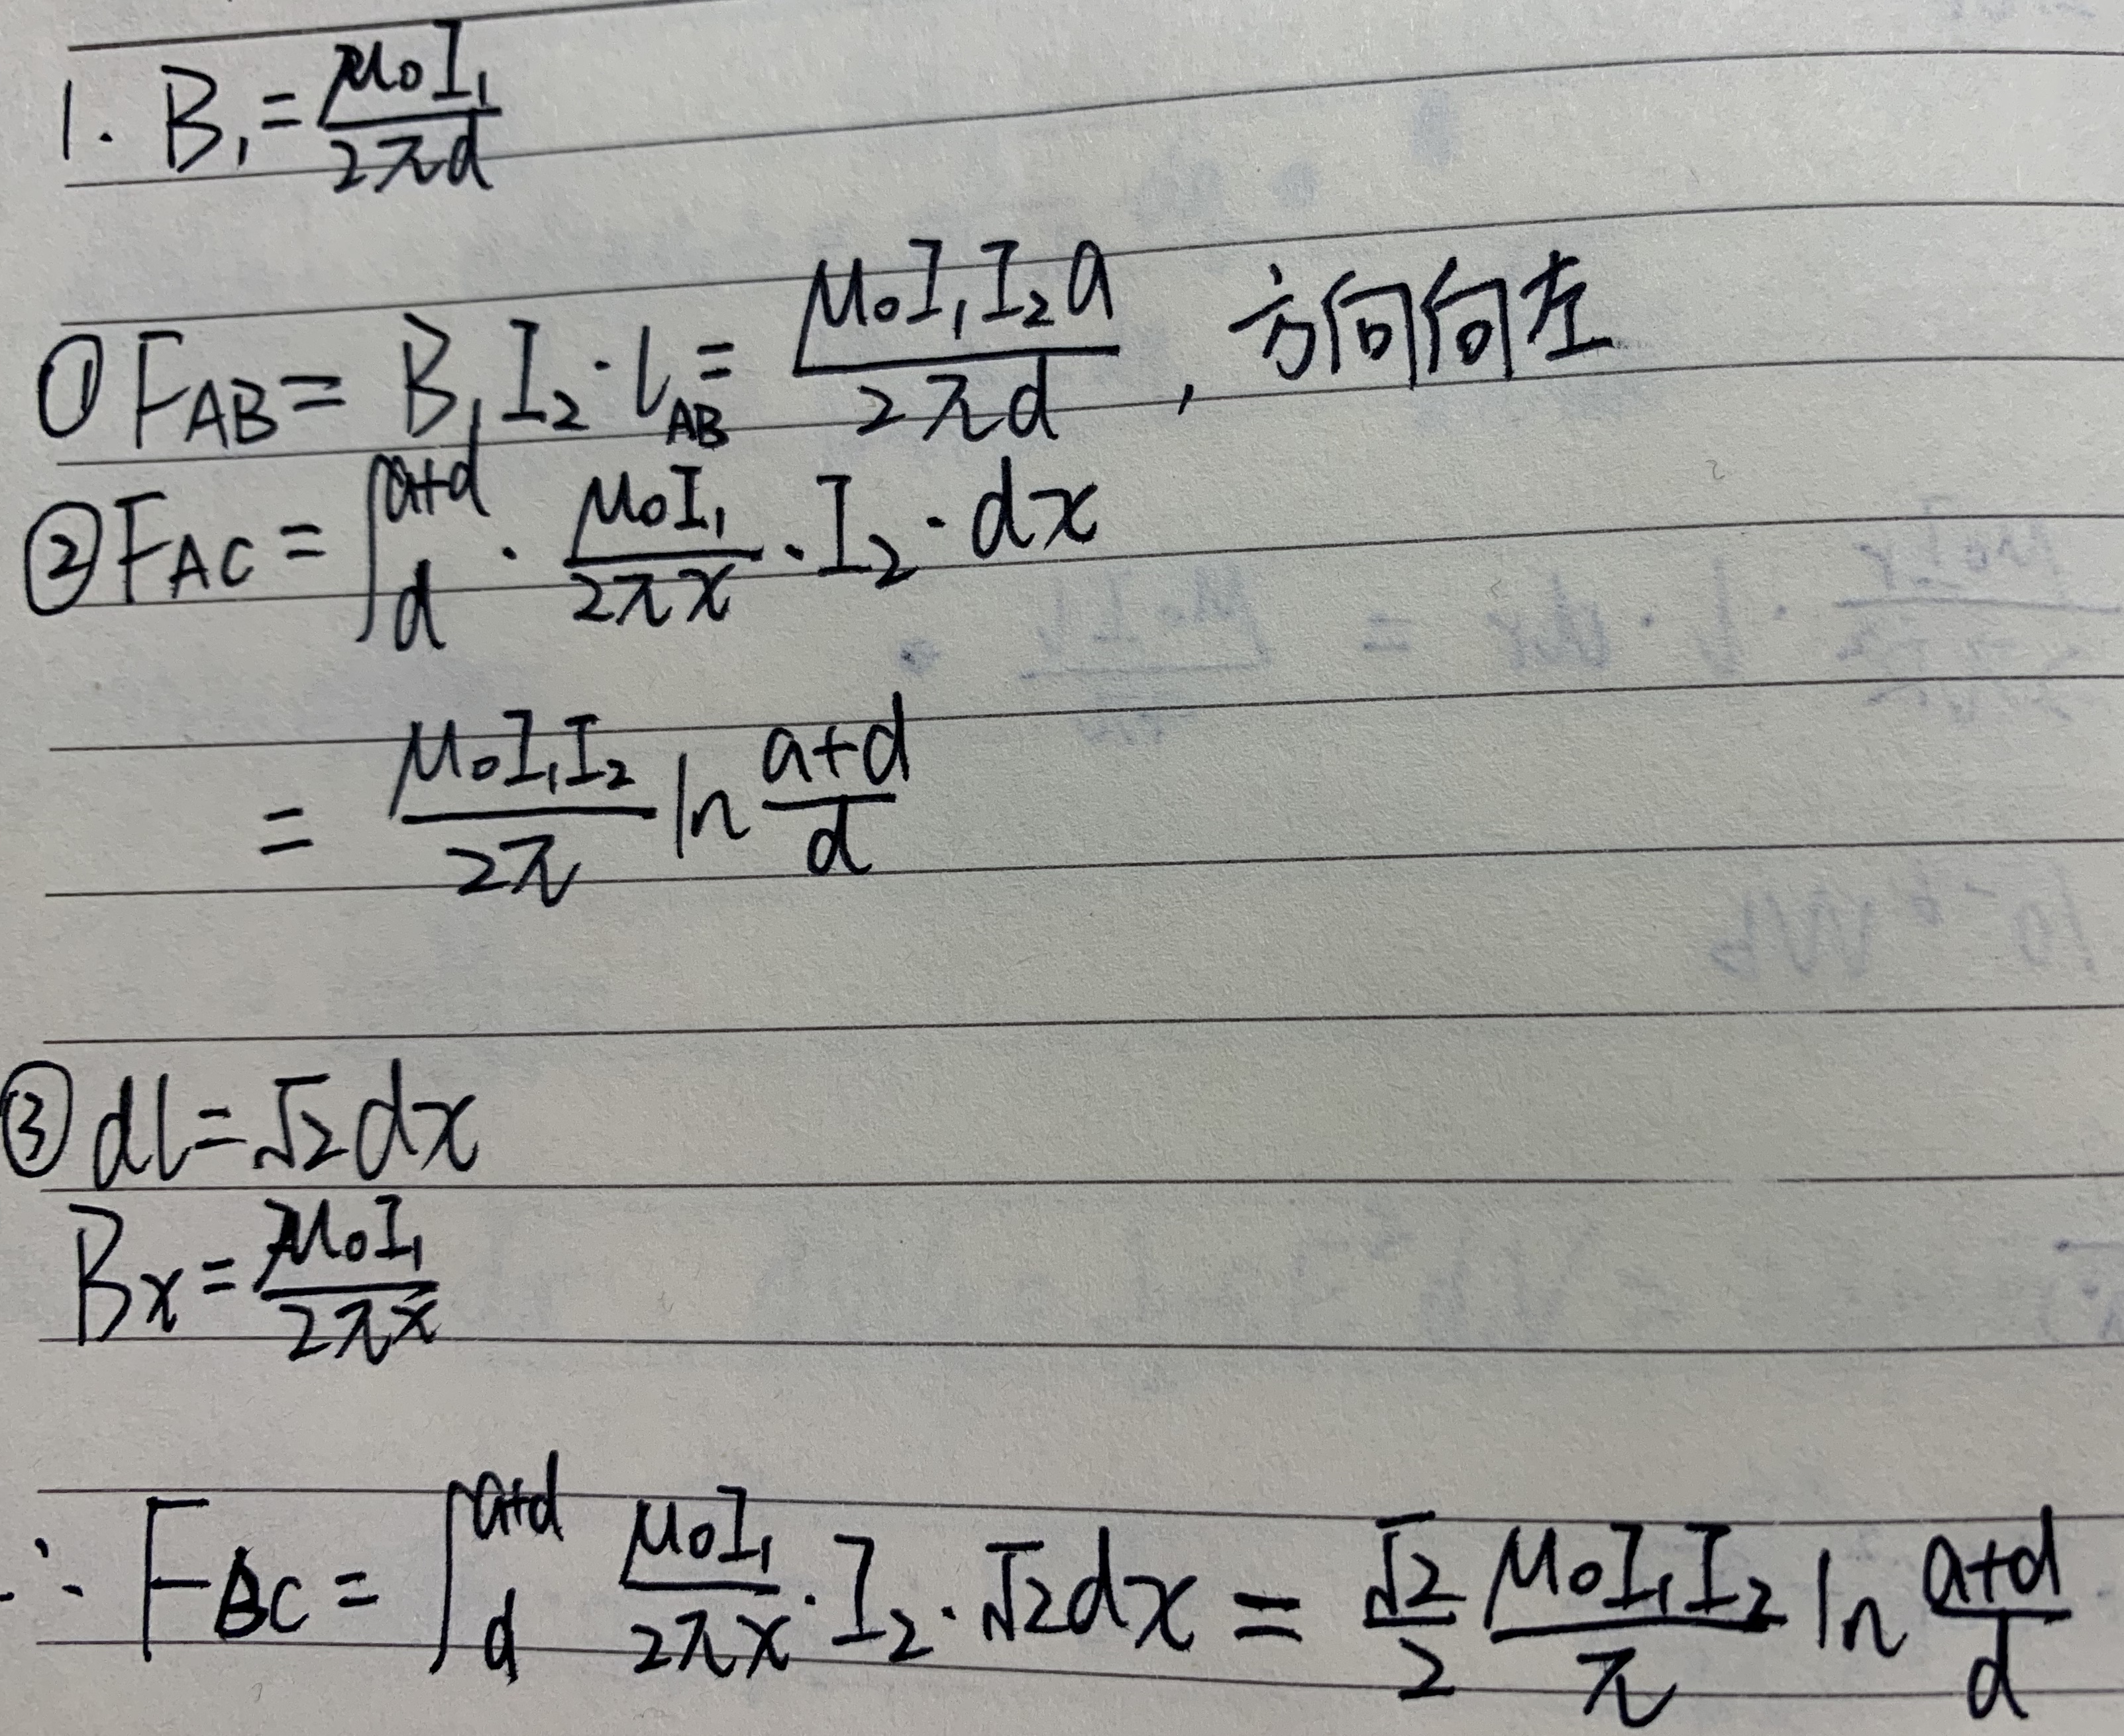 1. B₁ = μ₀I₁ / 2πd
① F_AB = B₁I₂·l_AB = μ₀I₁I₂a / 2πd , 方向向左
② F_AC = ∫_d^{a+d} · μ₀I₁ / 2πx · I₂ · dx
= μ₀I₁I₂ / 2π ln (a+d) / d
③ dl = √2dx
Bx = μ₀I₁ / 2πx
∴ F_BC = ∫_d^{a+d} μ₀I₁ / 2πx · I₂ · √2dx = √2 / 2 μ₀I₁I₂ / π ln (a+d) / d